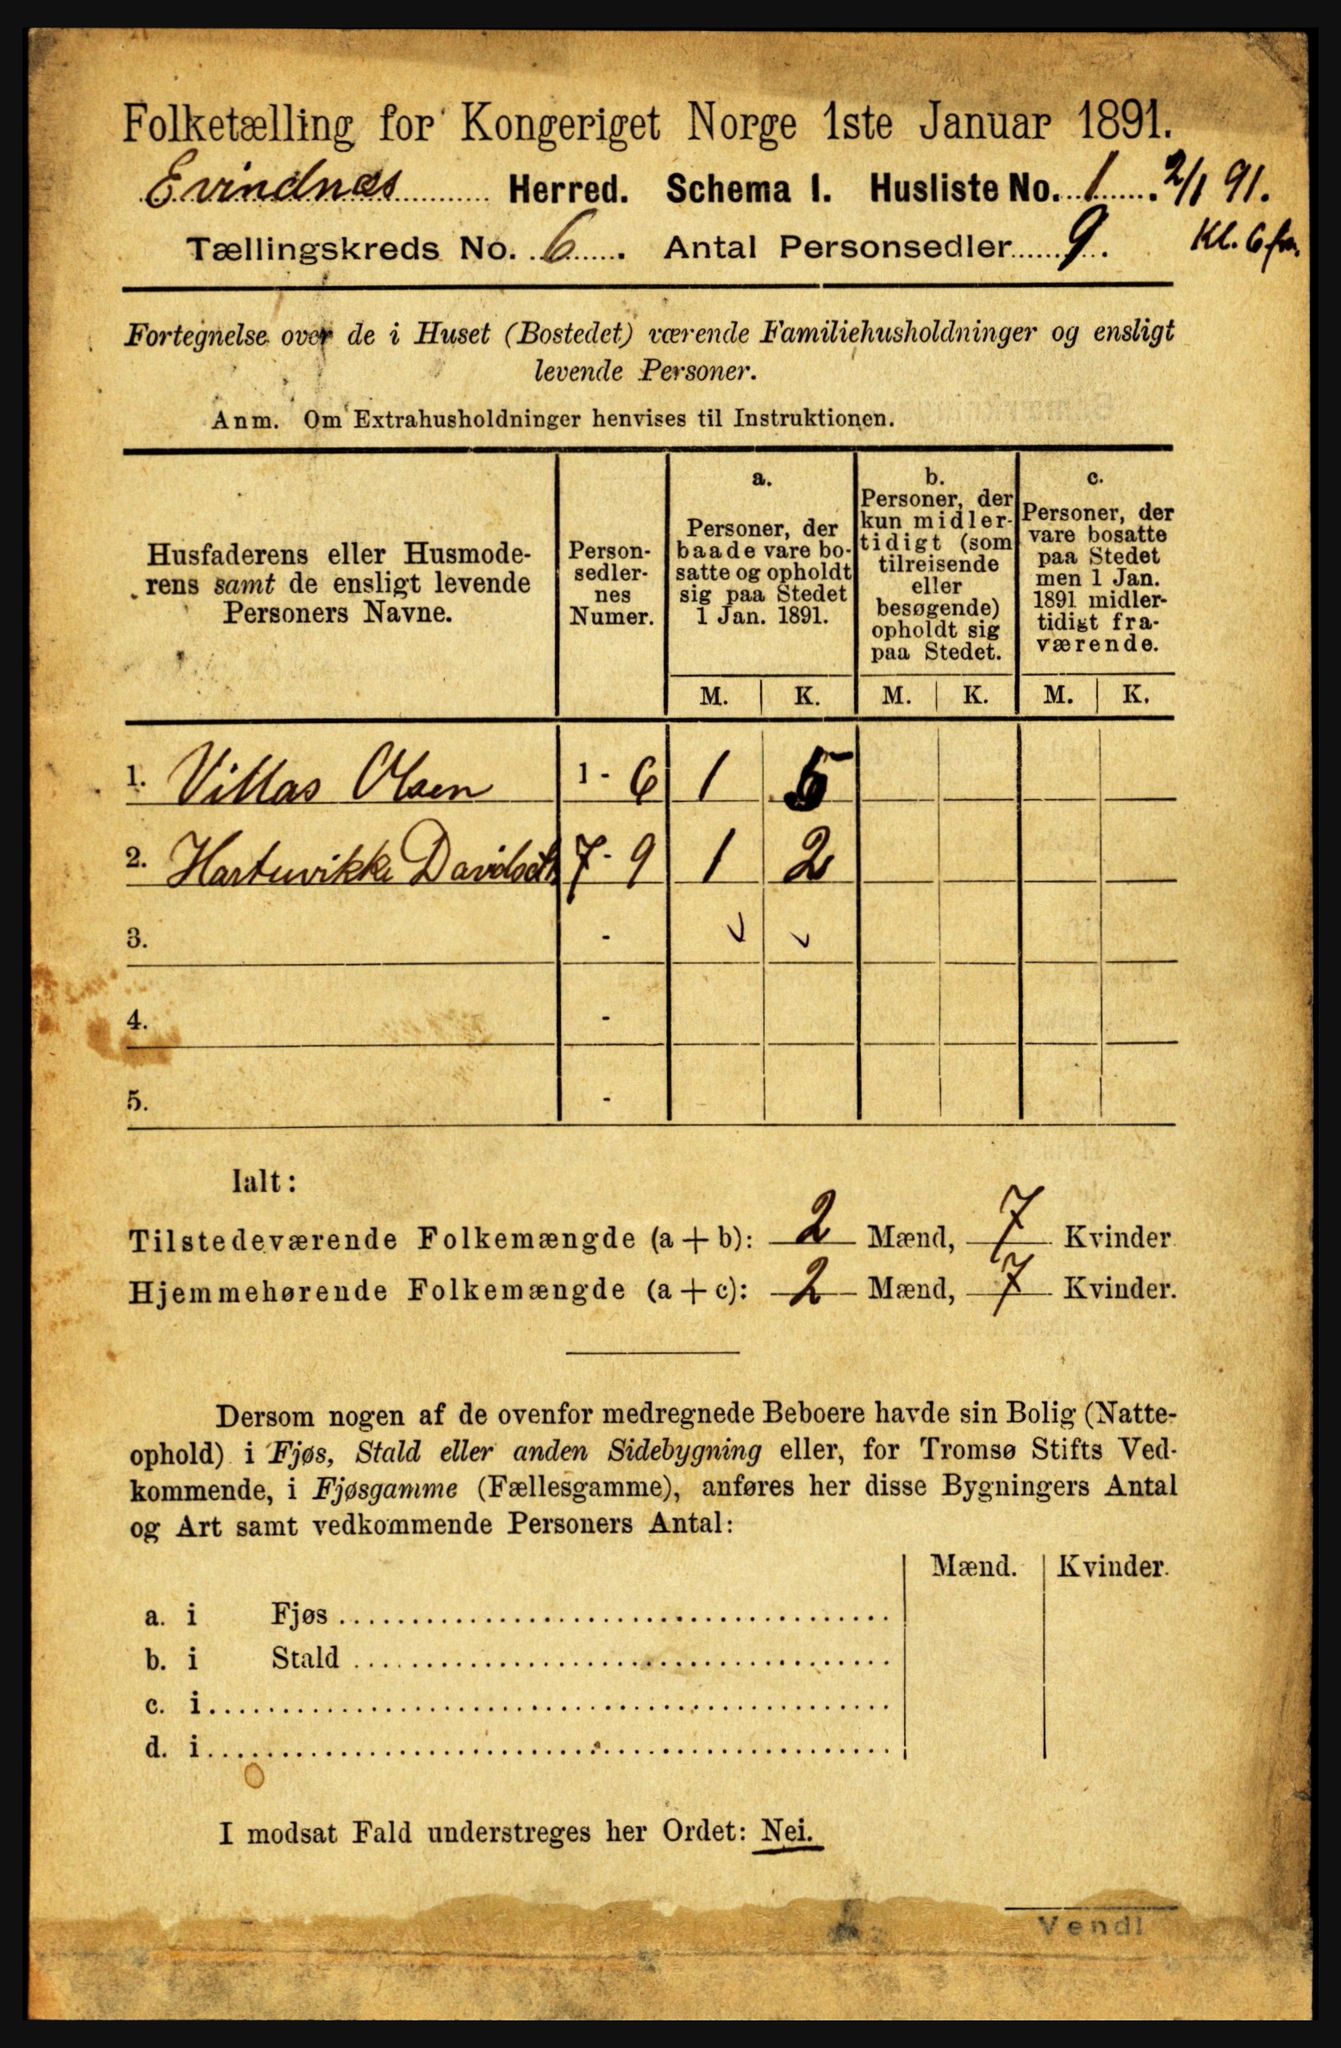 Folketælling for Kongeriget Norge 1ste Januar 1891.
Evindnæs Herred. Schema 1. Husliste No. 1. 2/1 91.
Tællingskreds No. 6. Antal Personsedler 9. Kl. 6 fm.
Fortegnelse over de i Huset (Bostedet) værende Familiehusholdninger og ensligt
levende Personer.
Anm. Om Extrahusholdninger henvises til Instruktionen.
Husfaderens eller Husmode-
rens samt de ensligt levende
Personers Navne.
Person-
sedler-
nes
Numer.
a.
Personer, der
baade vare bo-
satte og opholdt
sig paa Stedet
1 Jan. 1891.
b.
Personer, der
kun midler-
tidigt (som
tilreisende
eller
besøgende)
opholdt sig
paa Stedet.
c.
Personer, der
vare bosatte
paa Stedet
men 1 Jan.
1891 midler-
tidigt fra-
værende.
M. K. M. K. M. K.
1. Villas Olsen 1 - 6 1 5
2. Hartuvikke Davids 7 - 9 1 2
3. -
4. -
5. -
Ialt:
Tilstedeværende Folkemængde (a + b): 2 Mænd, 7 Kvinder
Hjemmehørende Folkemængde (a + c): 2 Mænd, 7 Kvinder.
Dersom nogen af de ovenfor medregnede Beboere havde sin Bolig (Natte-
ophold) i Fjøs, Stald eller anden Sidebygning eller, for Tromsø Stifts Ved-
kommende, i Fjøsgamme (Fællesgamme), anføres her disse Bygningers Antal
og Art samt vedkommende Personers Antal:
Mænd. Kvinder.
a. i Fjøs
b. i Stald
c. i
d. i
I modsat Fald understreges her Ordet: Nei.
Vendl